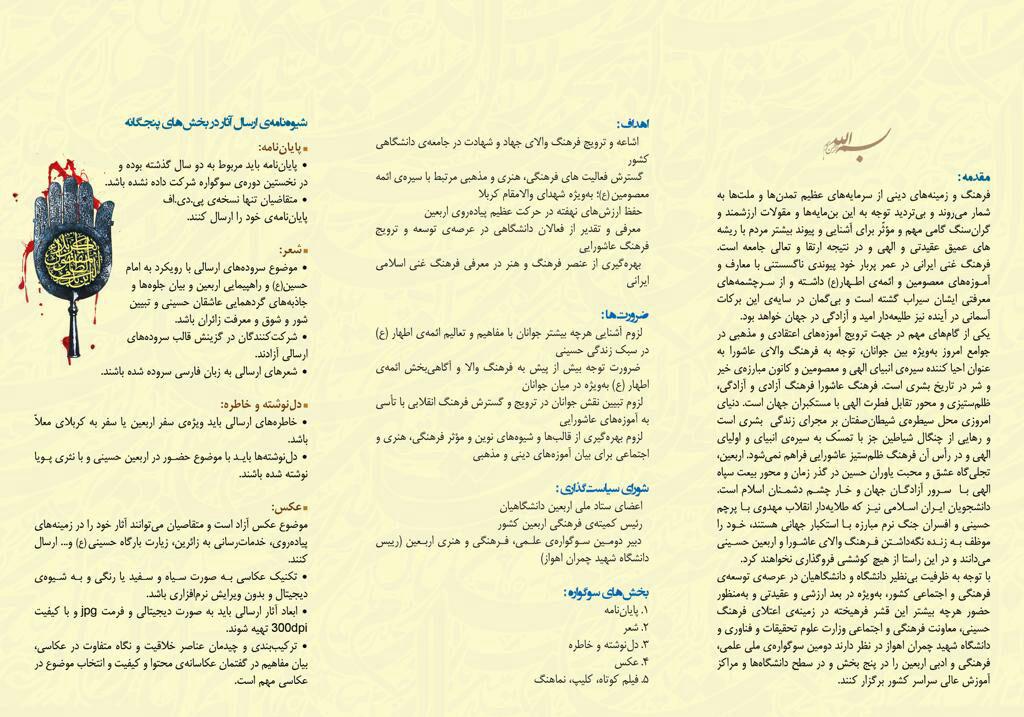 بسم الله
مقدمه:
فرهنگ و زمینه‌های دینی از سرمایه‌های عظیم تمدن‌ها و ملت‌ها به
شمار می‌روند و بی‌تردید توجه به این بن‌مایه‌ها و مقولات ارزشمند و
گران‌سنگ گامی مهم و مؤثّر برای آشنایی و پیوند بیشتر مردم با ریشه
های عمیق عقیدتی و الهی و در نتیجه ارتقا و تعالی جامعه است.
فرهنگ غنی ایرانی در عمر پربار خود پیوندی ناگسستنی با معارف و
آموزه‌های معصومین و ائمه‌ی اطهار(ع) داشته و از سرچشمه‌های
معرفتی ایشان سیراب گشته است و بی‌گمان در سایه‌ی این برکات
آسمانی در آینده نیز طلیعه‌دار امید و آزادگی در جهان خواهد بود.
یکی از گام‌های مهم در جهت ترویج آموزه‌های اعتقادی و مذهبی در
جوامع امروز به‌ویژه بین جوانان، توجه به فرهنگ والای عاشورا به
عنوان احیا کننده سیره‌ی انبیای الهی و معصومین و کانون مبارزه‌ی خیر
و شر در تاریخ بشری است. فرهنگ عاشورا فرهنگ آزادی و آزادگی،
ظلم‌ستیزی و محور تقابل فطرت الهی با مستکبران جهان است. دنیای
امروزی محل سیطره‌ی شیطان‌صفتان بر مجرای زندگی بشری است
و رهایی از چنگال شیاطین جز با تمسّک به سیره‌ی انبیای و اولیای
الهی و در رأس آن فرهنگ ظلم‌ستیز عاشورایی فراهم نمی‌شود. اربعین،
تجلی‌گاه عشق و محبت یاوران حسین در گذر زمان و محور بیعت سپاه
الهی با سرور آزادگان جهان و خار چشم دشمنان اسلام است.
دانشجویان ایران اسلامی نیز که طلایه‌دار انقلاب مهدوی با پرچم
حسینی و افسران جنگ نرم مبارزه با استکبار جهانی هستند، خود را
موظف به زنده نگه‌داشتن فرهنگ والای عاشورا و اربعین حسینی
می‌دانند و در این راستا از هیچ کوششی فروگذاری نخواهند کرد.
با توجه به ظرفیت بی‌نظیر دانشگاه و دانشگاهیان در عرصه‌ی توسعه‌ی
فرهنگی و اجتماعی کشور، به‌ویژه در بعد ارزشی و عقیدتی و به‌منظور
حضور هرچه بیشتر این قشر فرهیخته در زمینه‌ی اعتلای فرهنگ
حسینی، معاونت فرهنگی و اجتماعی وزارت علوم تحقیقات و فناوری و
دانشگاه شهید چمران اهواز در نظر دارند دومین سوگواره‌ی ملی علمی،
فرهنگی و ادبی اربعین را در پنج بخش و در سطح دانشگاه‌ها و مراکز
آموزش عالی سراسر کشور برگزار کنند.
اهداف:
اشاعه و ترویج فرهنگ والای جهاد و شهادت در جامعه‌ی دانشگاهی
کشور
گسترش فعالیت های فرهنگی، هنری و مذهبی مرتبط با سیره‌ی ائمه
معصومین(ع)؛ به‌ویژه شهدای والامقام کربلا
حفظ ارزش‌های نهفته در حرکت عظیم پیاده‌روی اربعین
معرفی و تقدیر از فعالان دانشگاهی در عرصه‌ی توسعه و ترویج
فرهنگ عاشورایی
بهره‌گیری از عنصر فرهنگ و هنر در معرفی فرهنگ غنی اسلامی
ایرانی
ضرورت‌ها:
لزوم آشنایی هرچه بیشتر جوانان با مفاهیم و تعالیم ائمه‌ی اطهار (ع)
در سبک زندگی حسینی
ضرورت توجه بیش از پیش به فرهنگ والا و آگاهی‌بخش ائمه‌ی
اطهار (ع) به‌ویژه در میان جوانان
لزوم تبیین نقش جوانان در ترویج و گسترش فرهنگ انقلابی با تأسی
به آموزه‌های عاشورایی
لزوم بهره‌گیری از قالب‌ها و شیوه‌های نوین و مؤثر فرهنگی، هنری و
اجتماعی برای بیان آموزه‌های دینی و مذهبی
شورای سیاست‌گذاری:
اعضای ستاد ملی اربعین دانشگاهیان
رئیس کمیته‌ی فرهنگی اربعین کشور
دبیر دومین سوگواره‌ی علمی، فرهنگی و هنری اربعین (رییس
دانشگاه شهید چمران اهواز)
بخش‌های سوگواره:
۱. پایان‌نامه
۲. شعر
۳. دل‌نوشته و خاطره
۴. عکس
۵. فیلم کوتاه، کلیپ، نماهنگ
شیوه‌نامه‌ی ارسال آثار در بخش‌های پنجگانه
▪ پایان‌نامه:
• پایان‌نامه باید مربوط به دو سال گذشته بوده و
در نخستین دوره‌ی سوگواره شرکت داده نشده باشد.
• متقاضیان تنها نسخه‌ی پی.دی.اف
پایان‌نامه‌ی خود را ارسال کنند.
▪ شعر:
• موضوع سروده‌های ارسالی با رویکرد به امام
حسین(ع) و راهپیمایی اربعین و بیان جلوه‌ها و
جاذبه‌های گردهمایی عاشقان حسینی و تبیین
شور و شوق و معرفت زائران باشد.
• شرکت‌کنندگان در گزینش قالب سروده‌های
ارسالی آزادند.
• شعرهای ارسالی به زبان فارسی سروده شده باشند.
▪ دل‌نوشته و خاطره:
• خاطره‌های ارسالی باید ویژه‌ی سفر اربعین یا سفر به کربلای معلاّ
باشد.
• دل‌نوشته‌ها باید با موضوع حضور در اربعین حسینی و با نثری پویا
نوشته شده باشند.
▪ عکس:
موضوع عکس آزاد است و متقاضیان می‌توانند آثار خود را در زمینه‌های
پیاده‌روی، خدمات‌رسانی به زائرین، زیارت بارگاه حسینی(ع) و... ارسال
کنند.
• تکنیک عکاسی به صورت سیاه و سفید یا رنگی و به شیوه‌ی
دیجیتال و بدون ویرایش نرم‌افزاری باشد.
• ابعاد آثار ارسالی باید به صورت دیجیتالی و فرمت jpg و با کیفیت
300dpi تهیه شوند.
• ترکیب‌بندی و چیدمان عناصر خلاقیت و نگاه متفاوت در عکاسی،
بیان مفاهیم در گفتمان عکاسانه‌ی محتوا و کیفیت و انتخاب موضوع در
عکاسی مهم است.